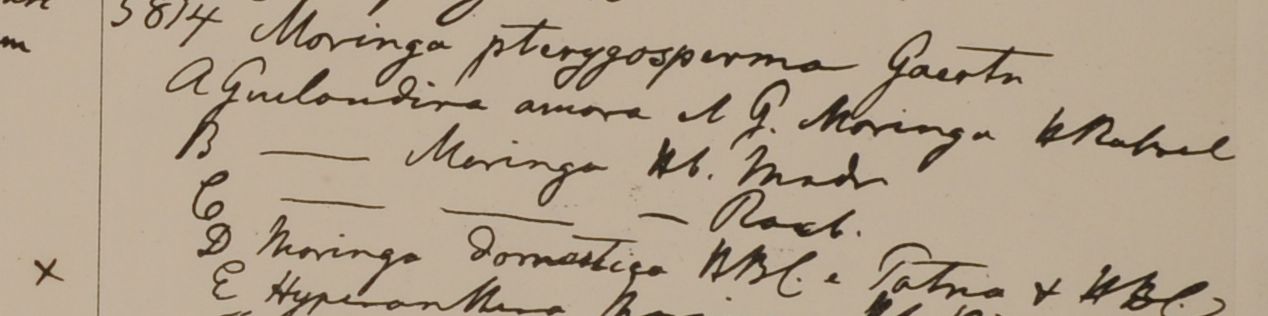 5814 Moringa pterygosperma Gaertn
A Guilandina amora & G. Moringa H Rahvel
B —— Moringa Hb. Madr
C —— —— — Roxb.
D Moringa domestica HBC. e Patna & HBC.
E Hyperanthera
m